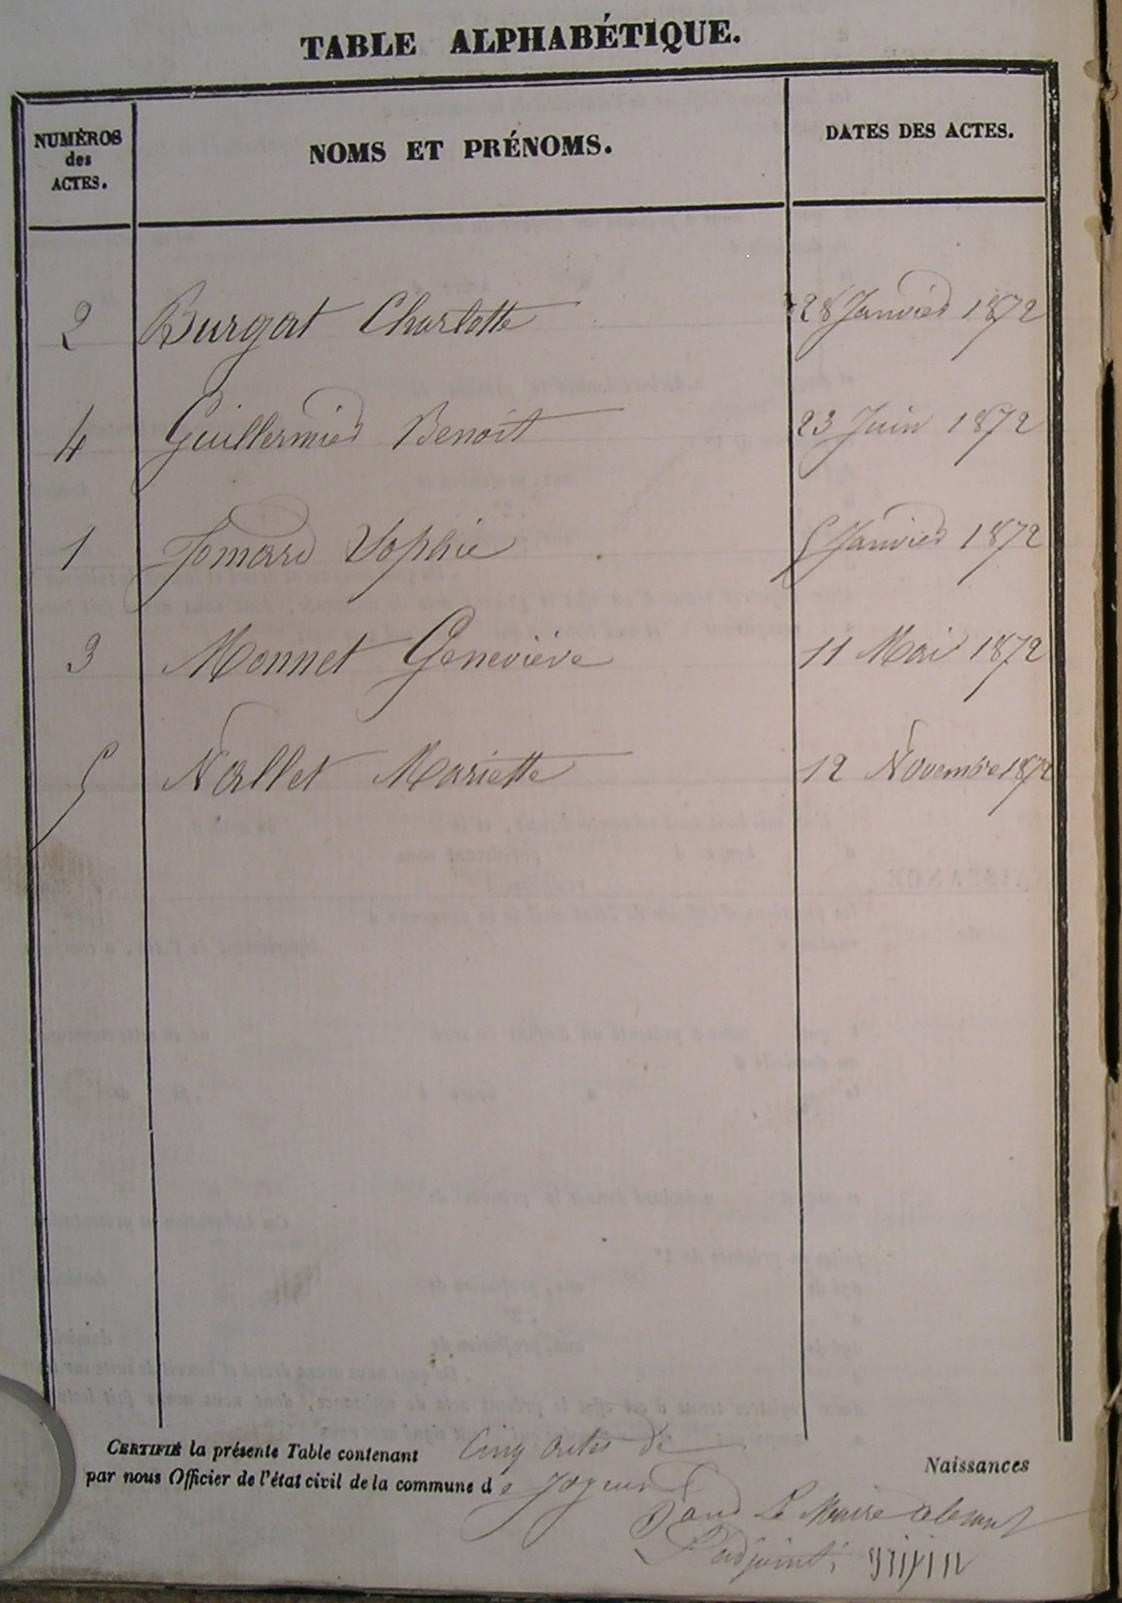 TABLE ALPHABÉTIQUE.
NUMÉROS des ACTES.
NOMS ET PRÉNOMS.
DATES DES ACTES.
2 Burgat Charlotte 28 Janvier 1872
4 Guillermier Benoit 23 Juin 1872
1 Jomard Sophie 5 Janvier 1872
3 Monnet Geneviève 11 Mai 1872
5 Nallet Mariette 12 Novembre 1872
CERTIFIÉ la présente Table contenant Cinq actes de Naissances
par nous Officier de l'état civil de la commune de
Le Maire absent
L'adjoint